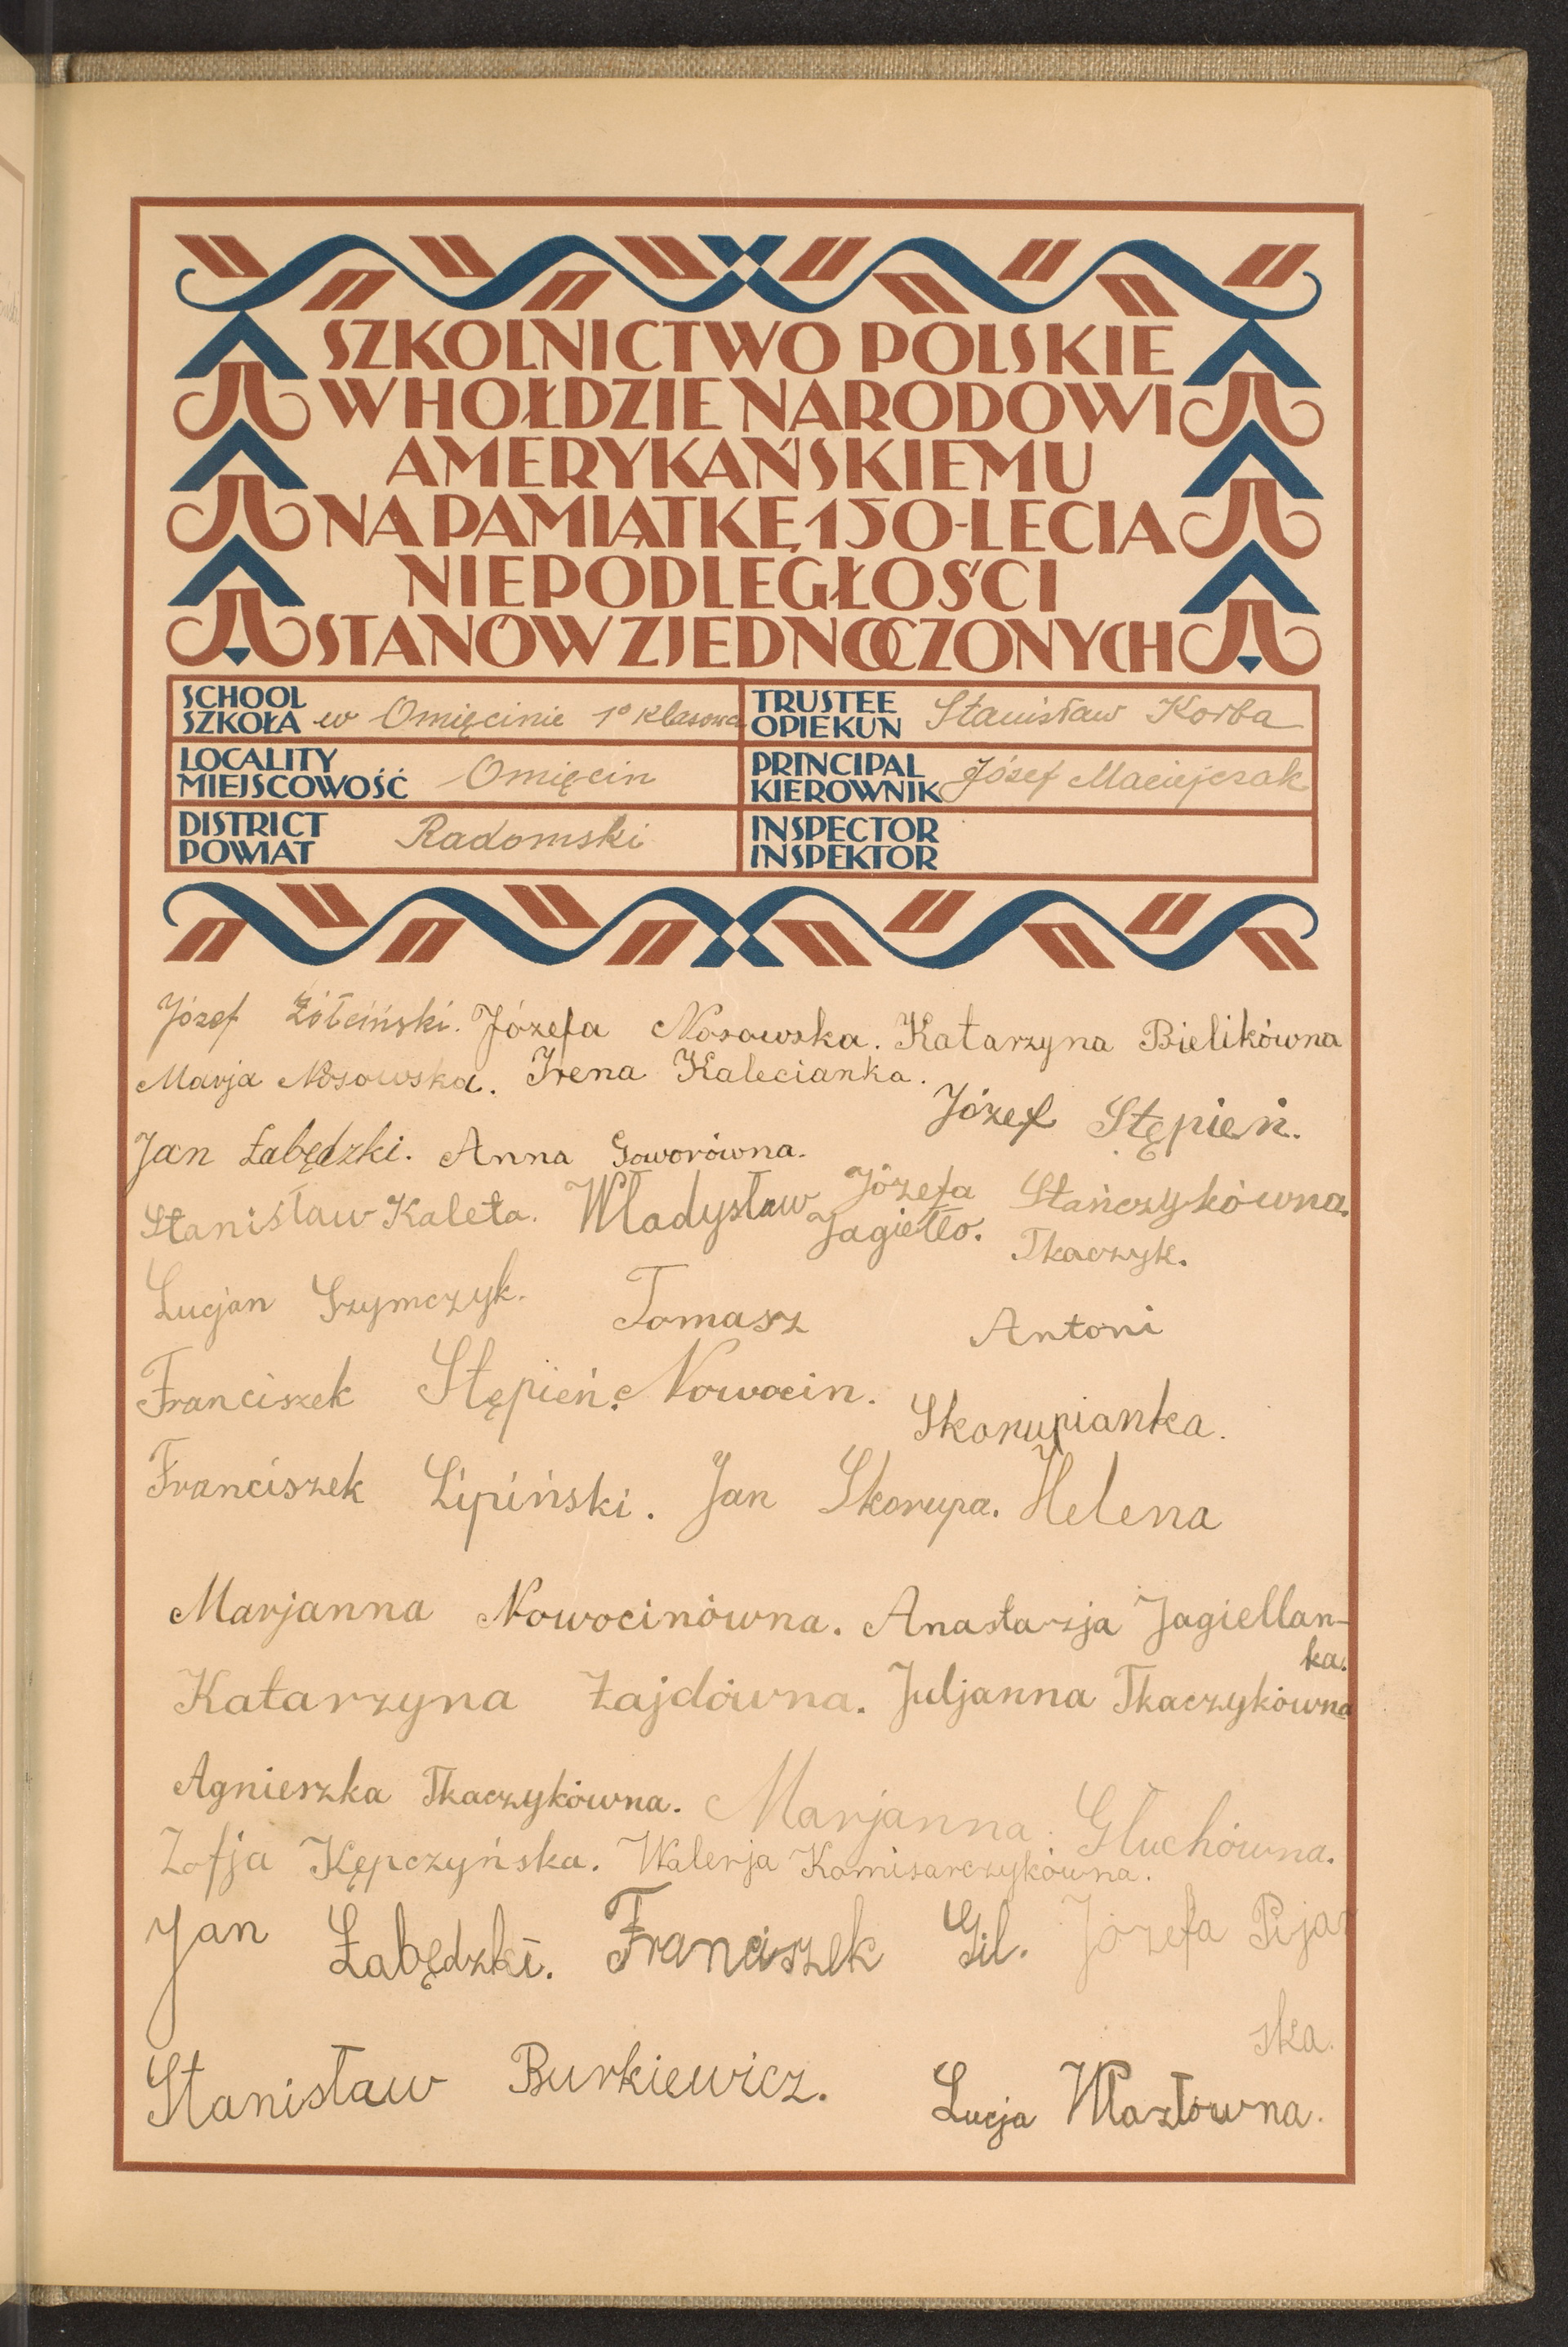 SZKOLNICTWO POLSKIE
W HOŁDZIE NARODOWI
AMERYKAŃSKIEMU
NA PAMIĄTKĘ 150-LECIA
NIEPODLEGŁOŚCI
STANÓW ZJEDNOCZONYCH
SCHOOL
SZKOŁA w Omięcinie 1º klasowa
TRUSTEE
OPIEKUN Stanisław Korba
LOCALITY
MIEJSCOWOŚĆ Omięcin
PRINCIPAL
KIEROWNIK Józef Maciejczak
DISTRICT
POWIAT Radomski
INSPECTOR
INSPEKTOR
Józef Żółciński. Józefa Nosowska. Katarzyna Bielikówna
Marja Nosowska. Irena Kalecianka.
Józef Stępień.
Jan Łabędzki. Anna Goworówna.
Józefa Stańczykówna.
Stanisław Kaleta. Władysław Jagiełło.
Tkaczyk.
Lucjan Szymczyk. Tomasz Antoni
Franciszek Stępień. Nowocin.
Skorupianka.
Franciszek Lipiński. Jan Skorupa. Helena
Marjanna Nowocinówna. Anastazja Jagiellan-
ka.
Katarzyna Łajdówna. Juljanna Tkaczykówna
Agnieszka Tkaczykówna. Marjanna Głuchówna.
Zofja Kępczyńska. Walerja Komisarczykówna.
Jan Łabędzki. Franciszek Gil. Józefa Pijar
ska.
Stanisław Burkiewicz. Łucja Wlazłówna.